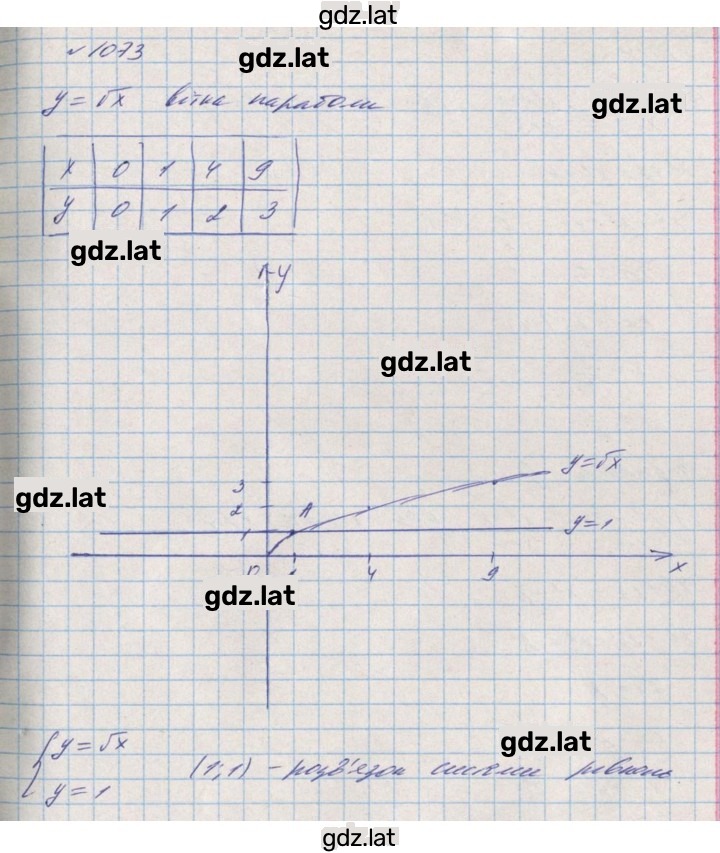 gdz.lat
№ 1073
gdz.lat
y = √x вітка параболи
gdz.lat
x 0 1 4 9
y 0 1 2 3
gdz.lat
y
gdz.lat
y=√x
3
gdz.lat
2 A
1 y=1
0 1 4 9 x
gdz.lat
{ y = √x
gdz.lat
(1;1) - розв'язок системи рівнянь
y = 1
gdz.lat